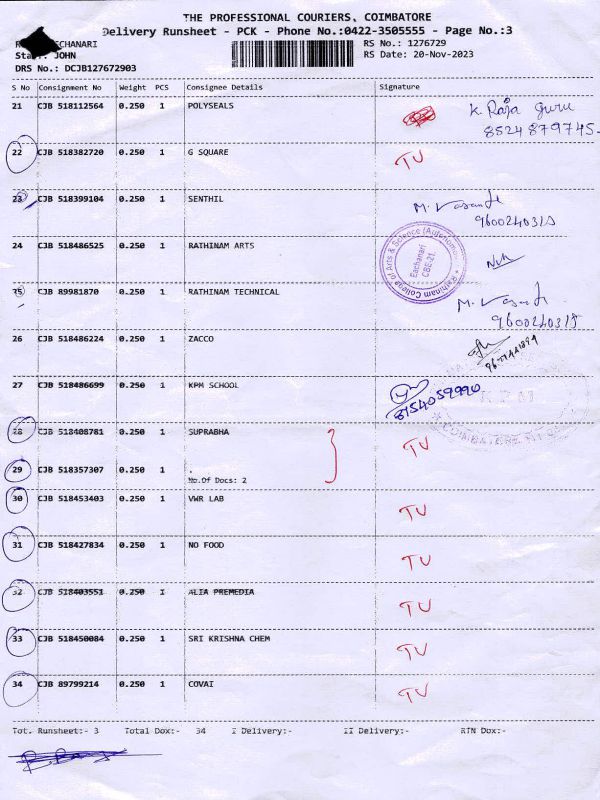 THE PROFESSIONAL COURIERS, COIMBATORE
Delivery Runsheet - PCK - Phone No.:0422-3505555 - Page No.:3
ECHANARI RS No.: 1276729
Staff: JOHN RS Date: 20-Nov-2023
DRS No.: DCJB127672903
S No Consignment No Weight PCS Consignee Details Signature
21 CJB 518112564 0.250 1 POLYSEALS K. Raja guru
8524879745
22 CJB 518382720 0.250 1 G SQUARE TU
23 CJB 518399104 0.250 1 SENTHIL M.
9600240315
24 CJB 518486525 0.250 1 RATHINAM ARTS
Rathinam College of Arts & Science (Autonomous)
Eachanari
CBE-21.
CJB 89981870 0.250 1 RATHINAM TECHNICAL M.
9600240315
26 CJB 518486224 0.250 1 ZACCO
27 CJB 518486699 0.250 1 KPM SCHOOL
8754059990
28 CJB 518408781 0.250 1 SUPRABHA TU
29 CJB 518357307 0.250 1 .
No.Of Docs: 2
30 CJB 518453403 0.250 1 VWR LAB TU
31 CJB 518427834 0.250 1 NO FOOD TU
32 CJB 518403551 0.250 1 ALIA PREMEDIA TU
33 CJB 518450084 0.250 1 SRI KRISHNA CHEM TU
34 CJB 89799214 0.250 1 COVAI TU
Tot. Runsheet:- 3 Total Dox:- 34 I Delivery:- II Delivery:- RTN Dox:-